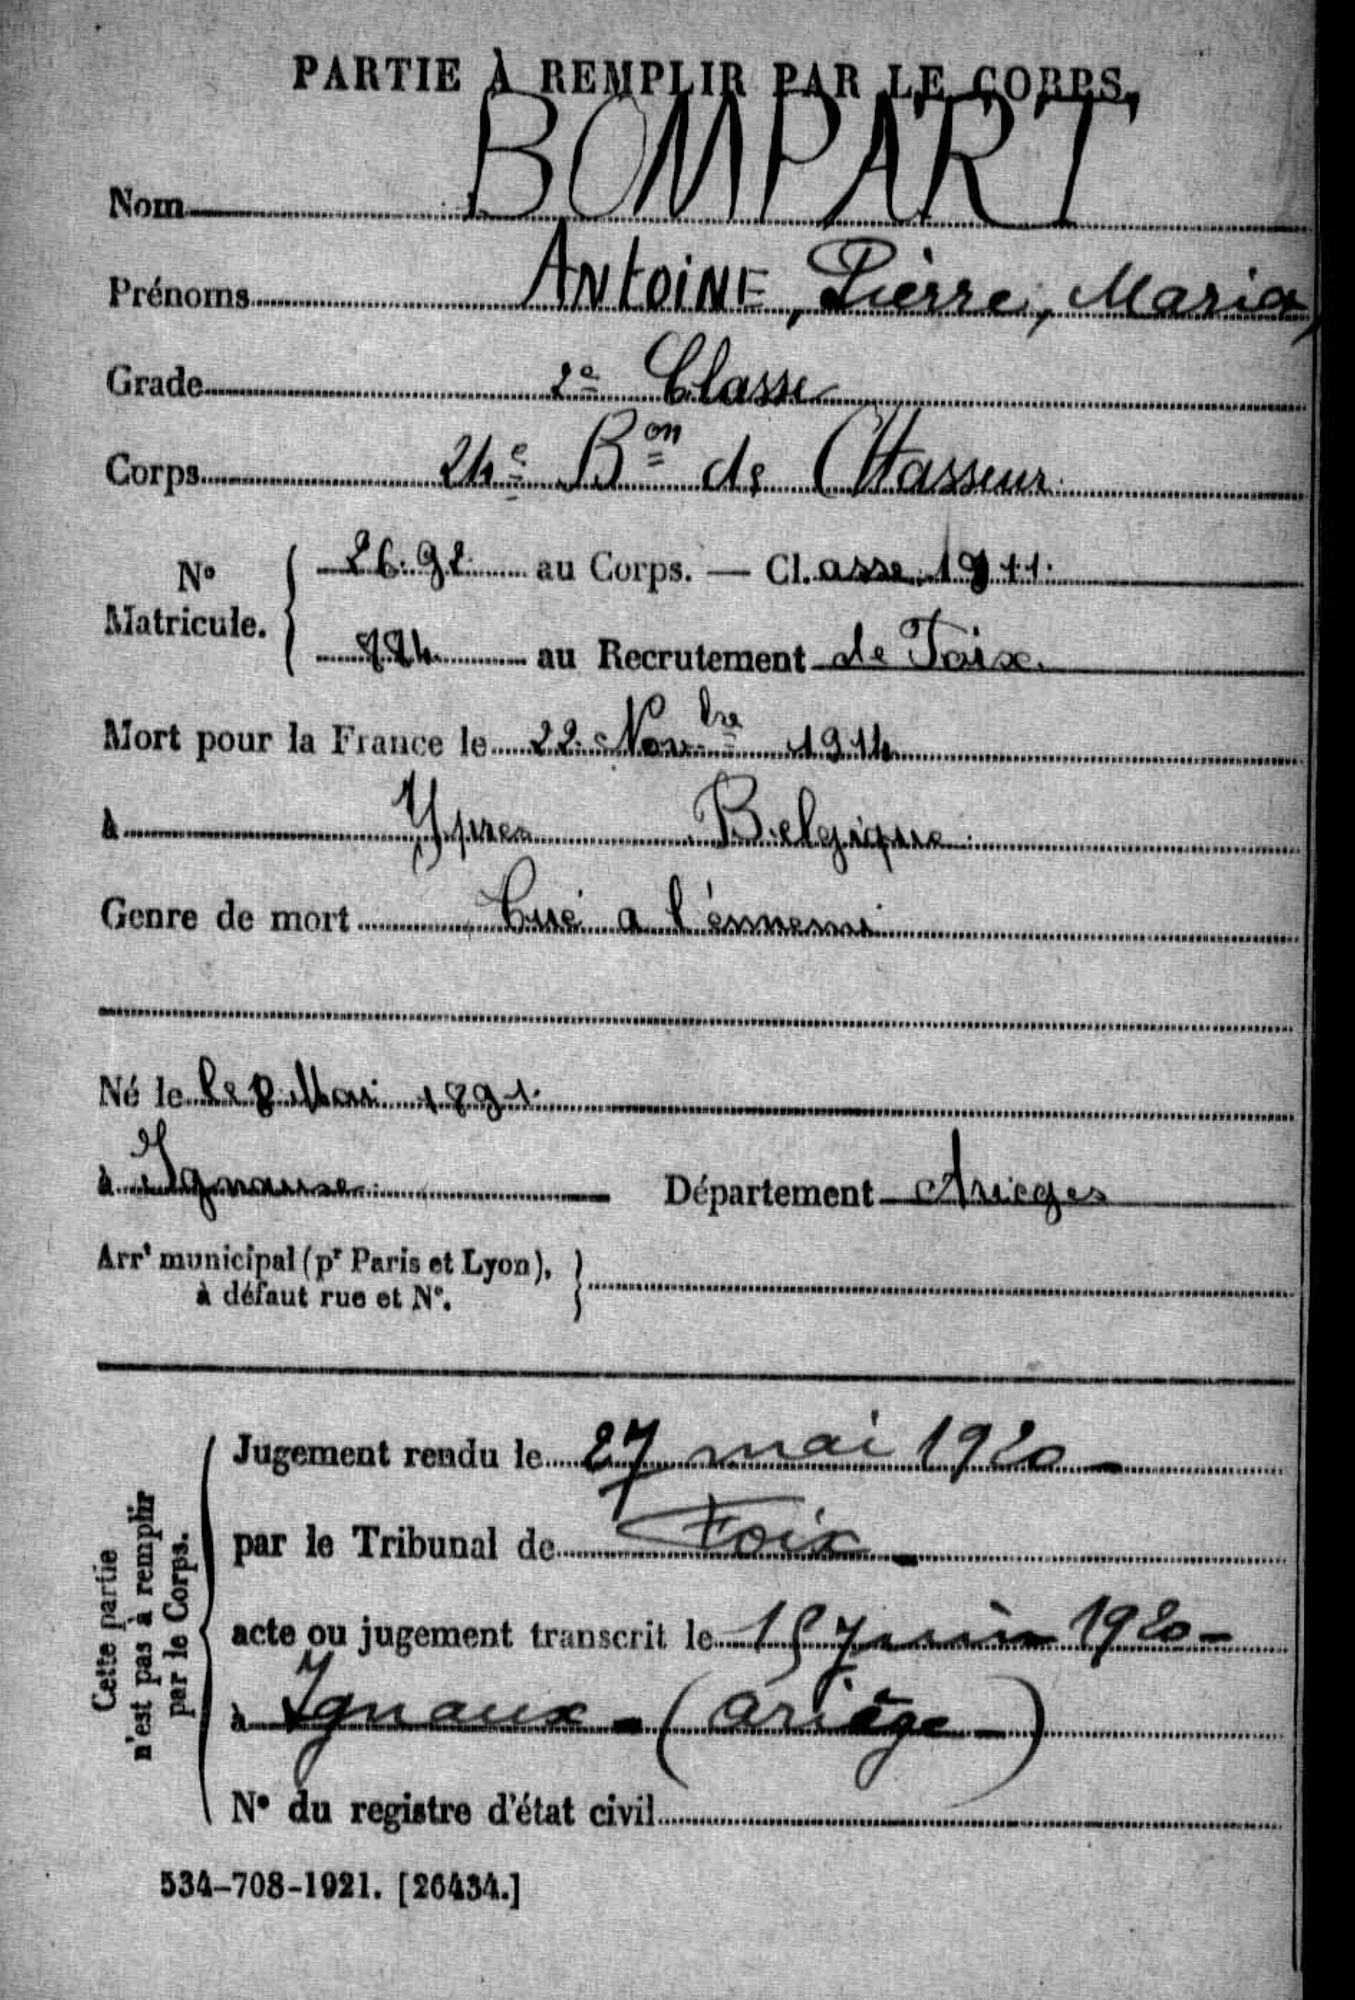 PARTIE À REMPLIR PAR LE CORPS.
Nom BOMPART
Prénoms ANtOiNE, Pierre, Maria
Grade 2e Classe
Corps 24e Bon de CHasseur
No Matricule. { 26.92 au Corps. — Cl.asse 1911.
au Recrutement de Foix.
Mort pour la France le 22 Novbre 1914
à Ypres Belgique
Genre de mort Tué a l'énnemi
Né le le 8 Mai 1891.
à Ignause Département Arieges
Arrt municipal (pr Paris et Lyon),
à défaut rue et No.
Cette partie
n'est pas à remplir
par le Corps.
Jugement rendu le 27 mai 1920 –
par le Tribunal de Foix –
acte ou jugement transcrit le 15 juin 1920 –
à Ignaux – (Ariège –)
No du registre d'état civil
534-708-1921. [26434.]